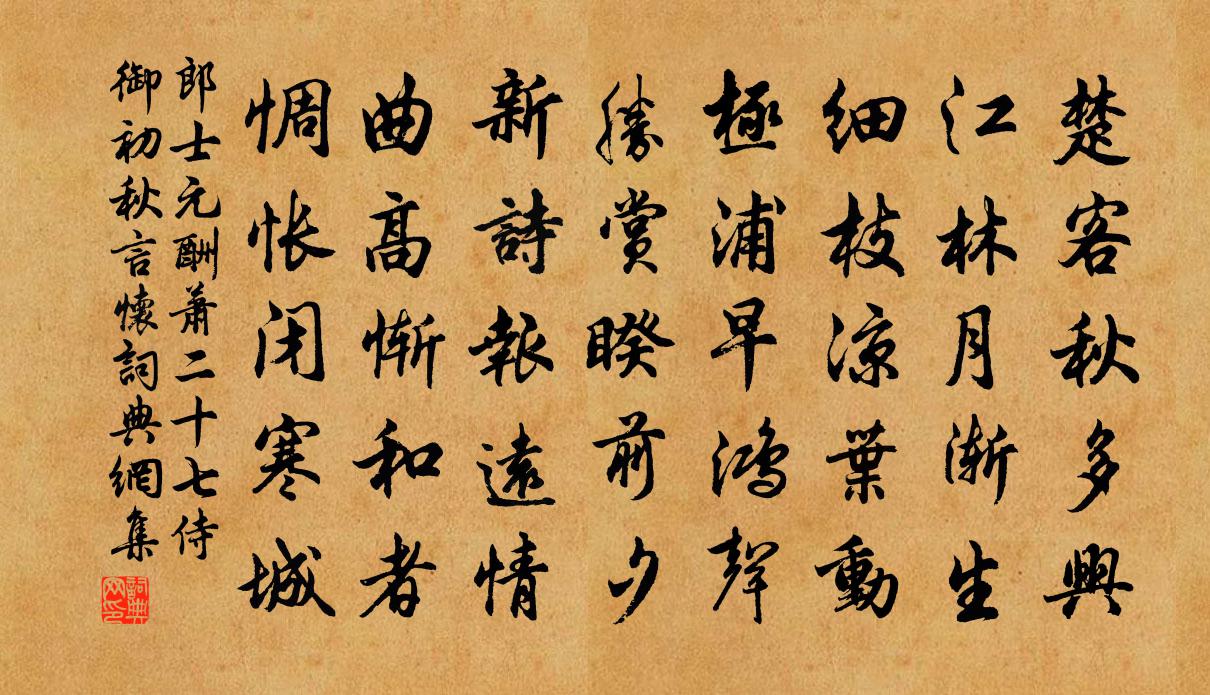 楚客秋多興
江林月漸生
細枝涼葉動
極浦早鴻聲
勝賞睽前夕
新詩報遠情
曲高慚和者
惆悵闭寒城
郎士元酬蕭二十七侍
御初秋言懷詞典網集
詞典网印